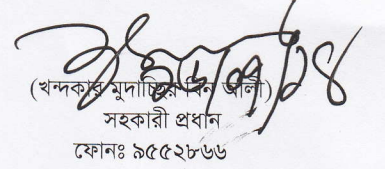 (খন্দকার মুদাচ্ছির বিন আলী)
সহকারী প্রধান
ফোনঃ ৯৫৫২৮৬৬